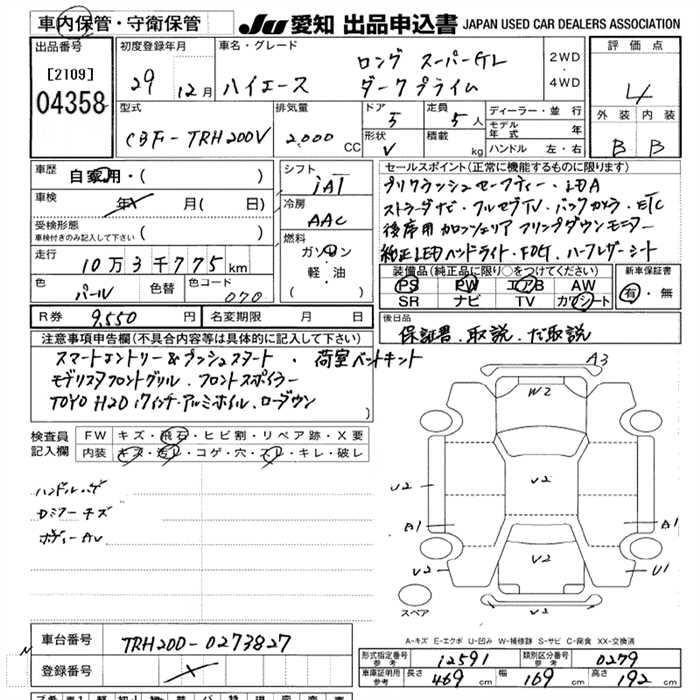 車内保管・守衛保管
JU 愛知 出品申込書 JAPAN USED CAR DEALERS ASSOCIATION
出品番号
[2109]
04358
初度登録年月
29 12月
車名・グレード
ハイエース
ロング スーパーGL
ダークプライム
2WD
・
4WD
評価点
4
外装 内装
B B
型式
CBF-TRH200V
排気量
2,000 CC
ドア
5
形状
V
定員
5人
積載
kg
ディーラー・並行
モデル年式 年
ハンドル 左・右
車歴
自家用・( )
車検
年 月( 日)
受検形態
車検付きのみ記入して下さい ( )
走行
10万3千775km
色
パール
色替
色コード
070
シフト
iAT
冷房
AAC
燃料
ガソリン
軽・油
( )
セールスポイント(正常に機能するものに限ります)
プリクラッシュセーフティー・LDA
ストラーダナビ・フルセグTV・バックカメラ・ETC
後席用カロッツェリア フリップダウンモニター
純正LEDヘッドライト・FOG・ハーフレザーシート
装備品(純正品に限り○をつけてください)
PS PW エアB AW
SR ナビ TV カワシート
新車保証書
有・無
R券 9,550 円
名変期限 月 日
後日品
保証書、取説、ナビ取説
注意事項申告欄(不具合内容等は具体的に記入して下さい)
スマートエントリー&プッシュスタート ・ 荷室ベッドキット
モデリスタフロントグリル・フロントスポイラー
TOYO H20 17インチ・アルミホイル・ローダウン
)
検査員記入欄
FW キズ・飛石・ヒビ割・リペア跡・X要
内装 キズ・汚レ・コゲ・穴・スレ・キレ・破レ
ハンドルハゲ
Dミラーキズ
ボディーAU
A3
W2
U2
U2
A1
A1
U2
U2
U1
スペア
A-キズ E-エクボ U-凹み W-補修跡 S-サビ C-腐食 XX-交換済
車台番号 TRH200-0273827
登録番号
形式指定番号 参考 12591
類別区分番号 参考 0279
車庫証明用 参考 長さ 469 cm 幅 169 cm 高さ 192 cm